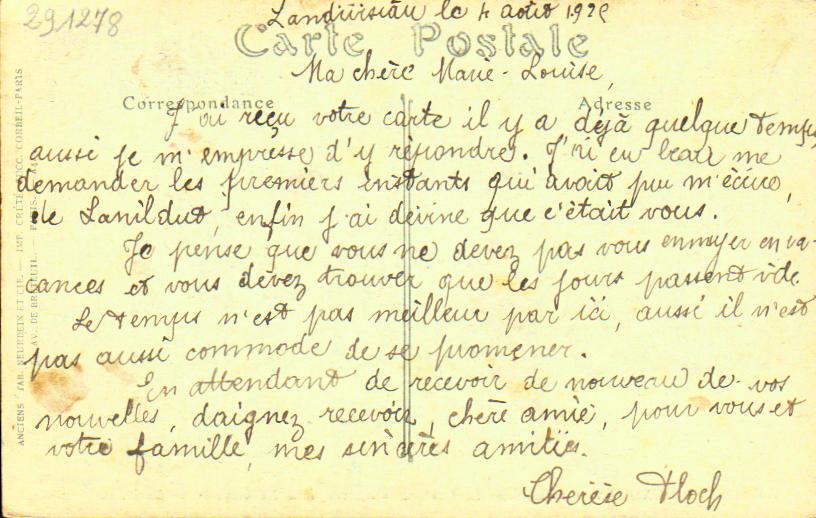 291278
Landivisiau le 4 août 192
Carte Postale
Ma chère Marie-Louise,
Correspondance
Adresse
J'ai reçu votre carte il y a déjà quelque temps,
aussi je m'empresse d'y répondre. J'ai eu beau me
demander les premiers instants qui avait pu m'écrire,
de Lanildut, enfin j'ai deviné que c'était vous.
Je pense que vous ne devez pas vous ennuyer en va-
cances et vous devez trouver que les jours passent vite.
Le temps n'est pas meilleur par ici, aussi il n'est
pas aussi commode de se promener.
En attendant de recevoir de nouveau de vos
nouvelles, daignez recevoir, chère amie, pour vous et
votre famille, mes sincères amitiés.
Thérèse Floch
ANCIENS ÉTAB. NEURDEIN ET CIE. — IMP. CRÉTÉ, SUCC. CORBEIL-PARIS
AV. DE BRETEUIL. — PARIS.